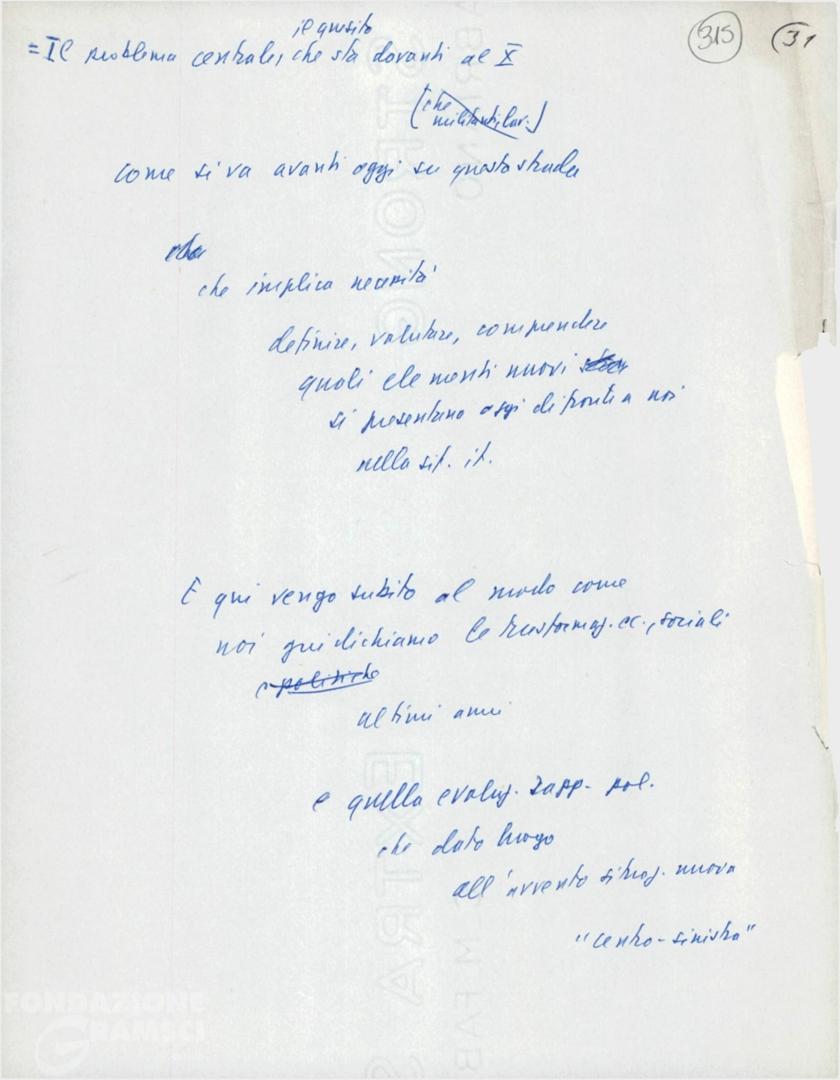 il quesito
= Il problema centrale, che sta davanti al X
315
31
(che
militanti, lav.)
come si va avanti oggi su questa strada
che implica necessità
definire, valutare, comprendere
quali elementi nuovi
si presentano oggi di fronte a noi
nella sit. it.
E qui vengo subito al modo come
noi giudichiamo le trasformaz. ec., sociali
e politiche
ultimi anni
e quella evoluz. rapp. pol.
che dato luogo
all'avvento situaz. nuova
"centro-sinistra"
FONDAZIONE
GRAMSCI